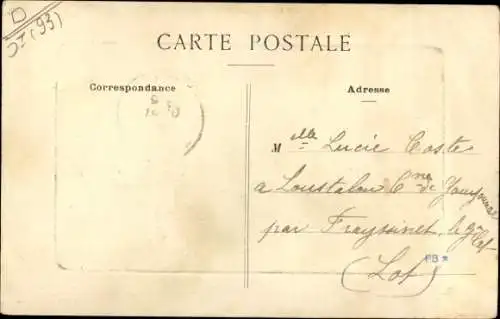 D
(93)
CARTE POSTALE
Correspondance
Adresse
Mlle Lucie Coste
a Loustalou Cne de
par Frayssinet le
(Lot)
PB *